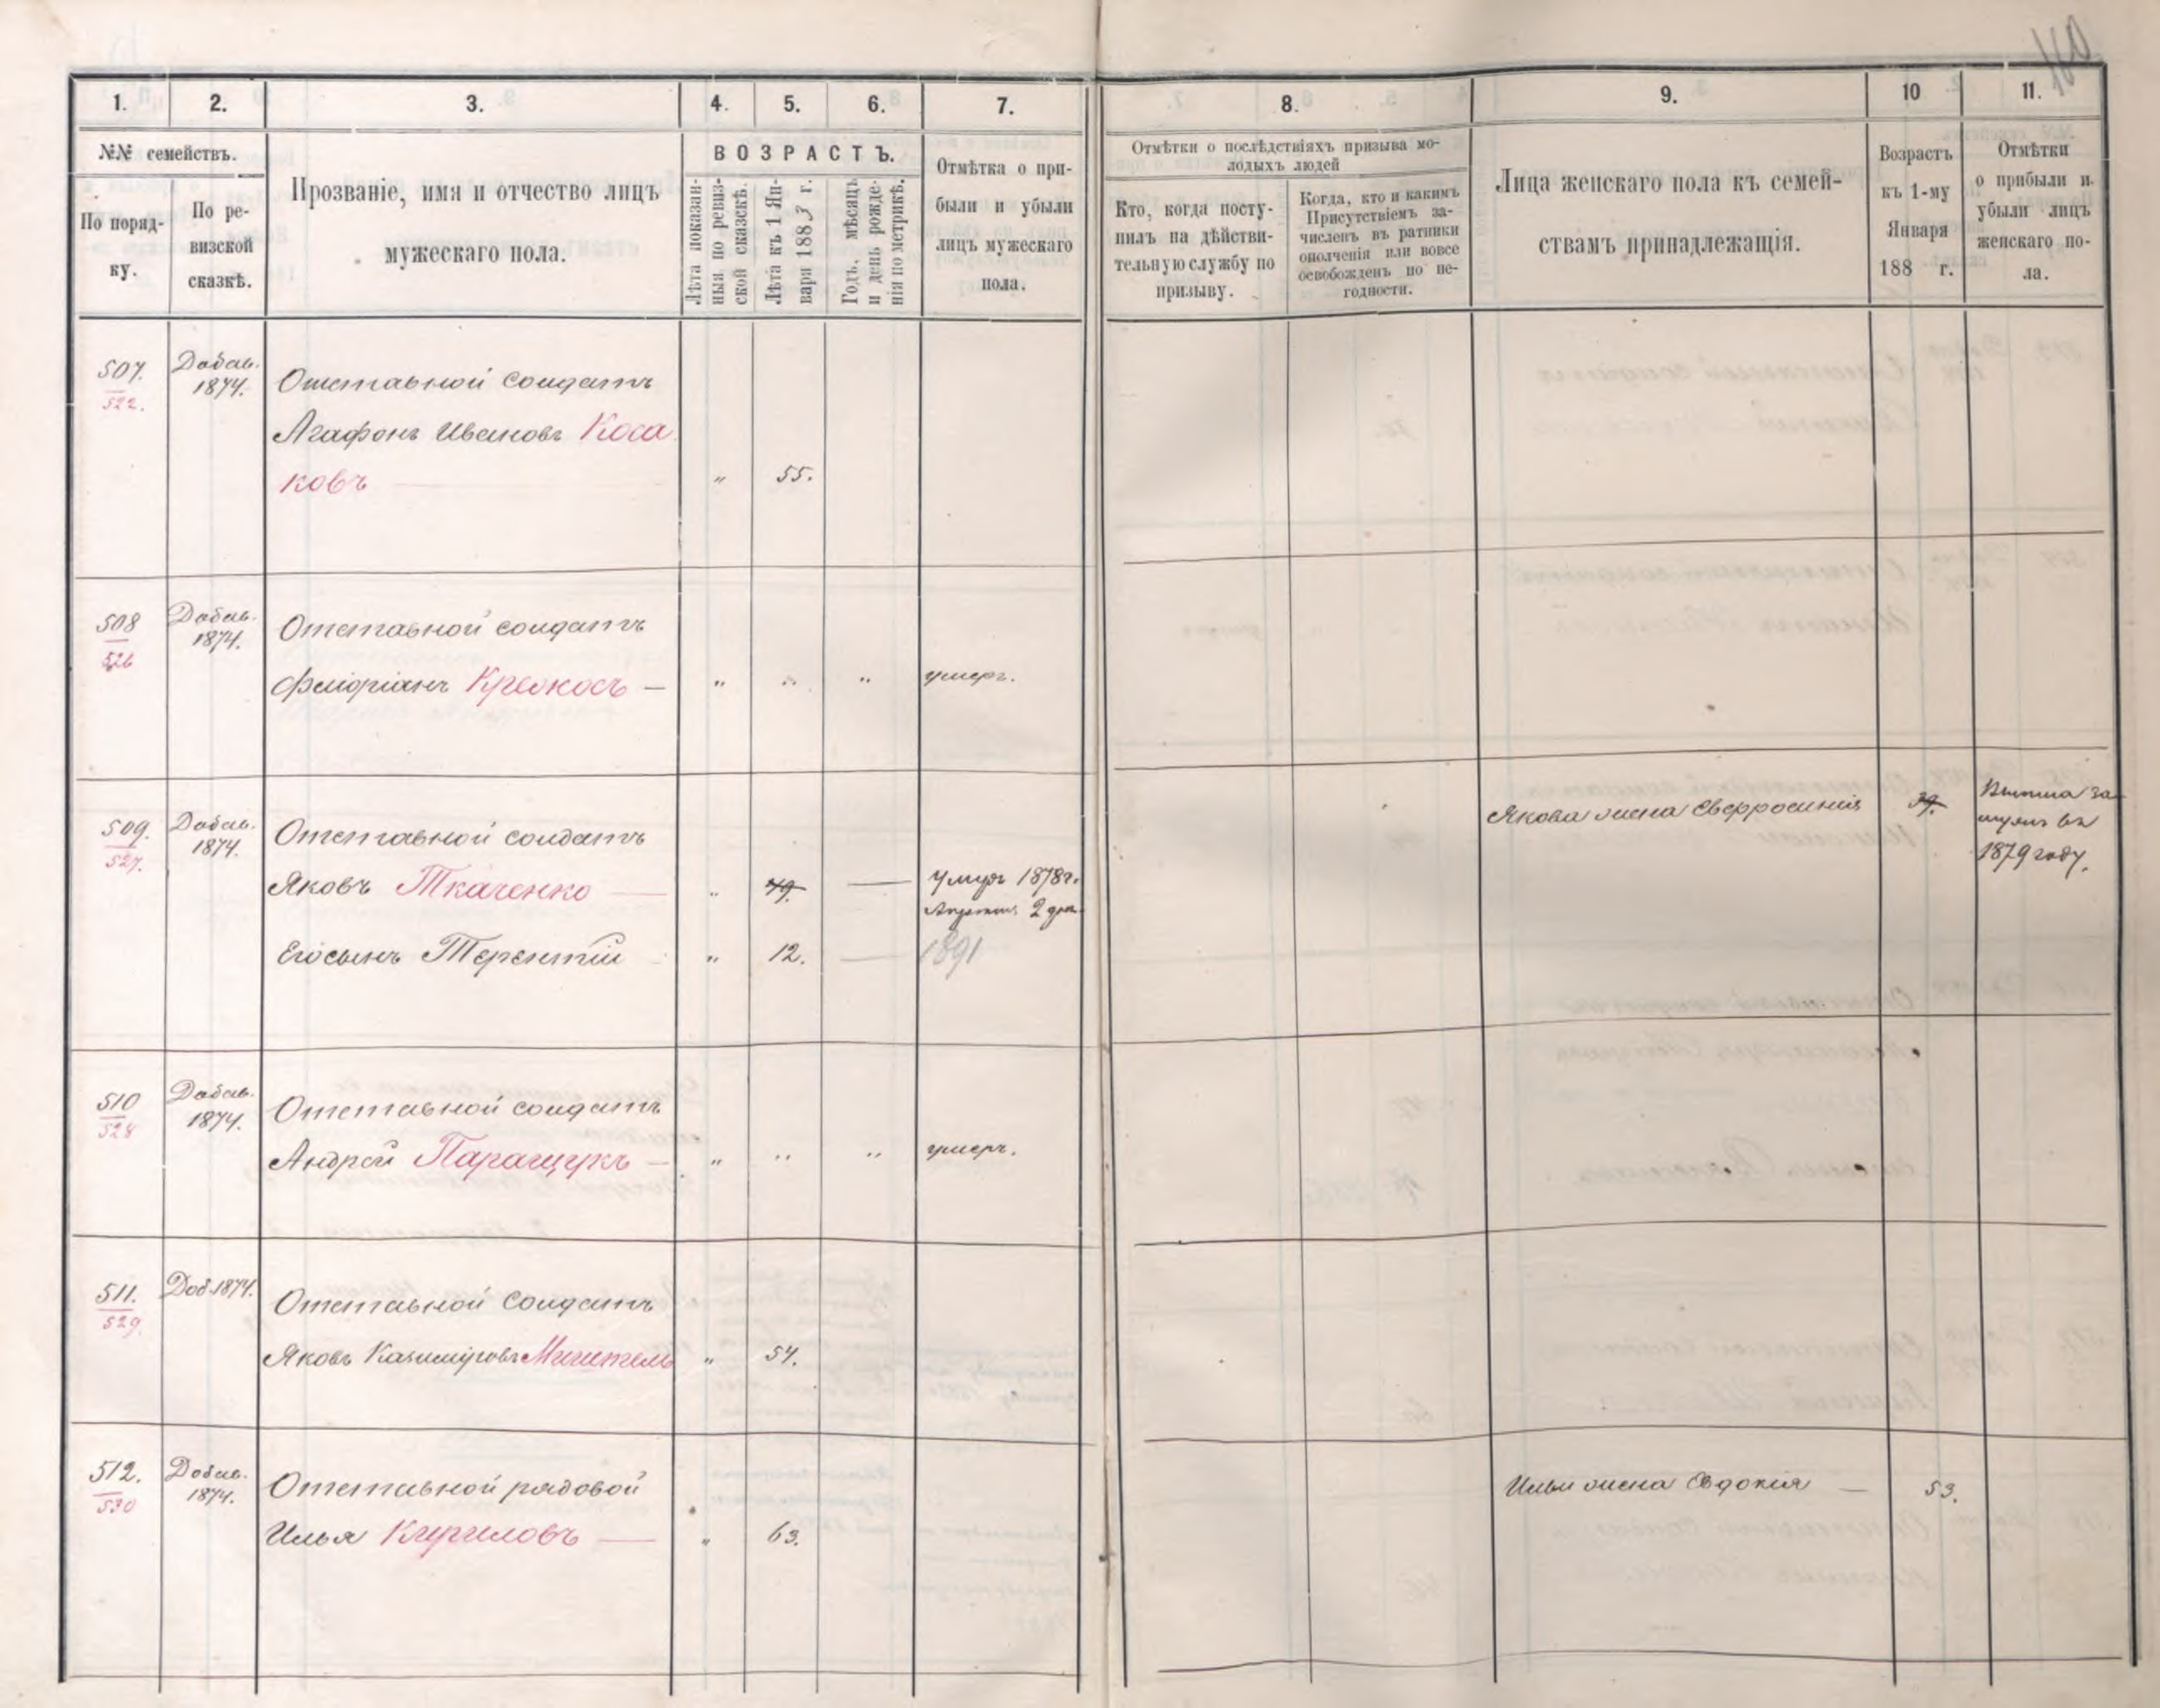 1. 2. 3. 4. 5. 6. 7. 8. 9. 10 11.
№№ семействъ.
По поряд-
ку.
По ре-
визской
сказкѣ.
Прозваніе, имя и отчество лицъ
мужескаго пола.
ВОЗРАСТЪ.
Лѣта показан-
ныя по ревиз-
ской сказкѣ.
Лѣта къ 1 Ян-
варя 1883 г.
Годъ, мѣсяцъ
и день рожде-
нія по метрикѣ.
Отмѣтка о при-
были и убыли
лицъ мужескаго
пола.
Отмѣтки о послѣдствіяхъ призыва мо-
лодыхъ людей
Кто, когда посту-
пилъ на дѣйстви-
тельную службу по
призыву.
Когда, кто и какимъ
Присутствіемъ за-
численъ въ ратники
ополченія или вовсе
освобожденъ по не-
годности.
Лица женскаго пола къ семей-
ствамъ принадлежащія.
Возрастъ
къ 1-му
Января
188 г.
Отмѣтки
о прибыли и
убыли лицъ
женскаго по-
ла.
507. Добав. Отставной солдатъ
522. 1874.
Агафонъ Ивановъ Коса
ковъ " 55.
508 Добав. Отставной солдатъ
526 1874.
Флоріанъ Кревкосъ — " " " умеръ.
509. Добав. Отставной солдатъ Якова жена Евфросинія 39. Вышла за
527. 1874. мужъ въ
1879 году.
Яковъ Ткаченко " 49. — Умеръ 1878 г.
Апреля 2 дня
Его сынъ Терентій " 12. — 1891
510 Добав. Отставной солдатъ
528 1874.
Андрей Паращукъ — " " " умеръ.
511. Доб. 1874. Отставной солдатъ
529.
Яковъ Казиміровъ " 54.
512. Добав. Отставной рядовой Ильи жена Евдокія — 53.
530 1874.
Илья Кириловъ — " 63.